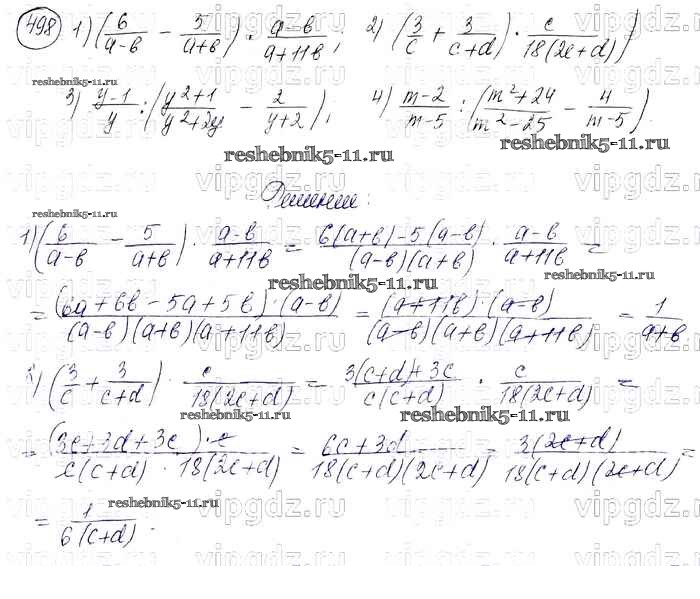 498 1) (6/(a-b) - 5/(a+b)) · (a-b)/(a+11b); 2) (3/c + 3/(c+d)) · c/(18(2c+d));
reshebnik5-11.ru
3) (y-1)/y : ((y²+1)/(y²+2y) - 2/(y+2)); 4) (m-2)/(m-5) : ((m²+24)/(m²-25) - 4/(m-5)).
reshebnik5-11.ru reshebnik5-11.ru
Решение:
reshebnik5-11.ru
1) (6/(a-b) - 5/(a+b)) · (a-b)/(a+11b) = (6(a+b)-5(a-b))/((a-b)(a+b)) · (a-b)/(a+11b) =
reshebnik5-11.ru reshebnik5-11.ru
= ((6a+6b-5a+5b)·(a-b))/((a-b)(a+b)(a+11b)) = ((a+11b)·(a-b))/((a-b)(a+b)(a+11b)) = 1/(a+b)
) (3/c + 3/(c+d)) · c/(18(2c+d)) = (3(c+d)+3c)/(c(c+d)) · c/(18(2c+d)) =
reshebnik5-11.ru reshebnik5-11.ru
= ((3c+3d+3c)·c)/(c(c+d)·18(2c+d)) = (6c+3d)/(18(c+d)(2c+d)) = (3(2c+d))/(18(c+d)(2c+d)) =
reshebnik5-11.ru
= 1/(6(c+d)).
vipgdz.ru vipgdz.ru vipgdz.ru vipgdz.ru